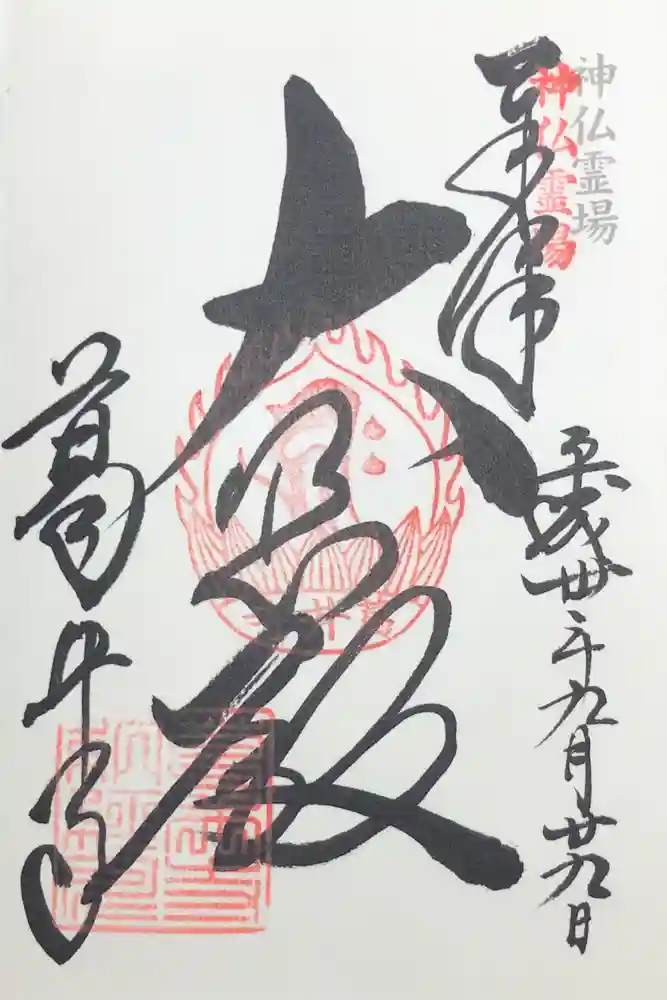 神仏霊場
神仏霊場
奉拝
平成卅年九月廿九日
大悲殿
葛井寺